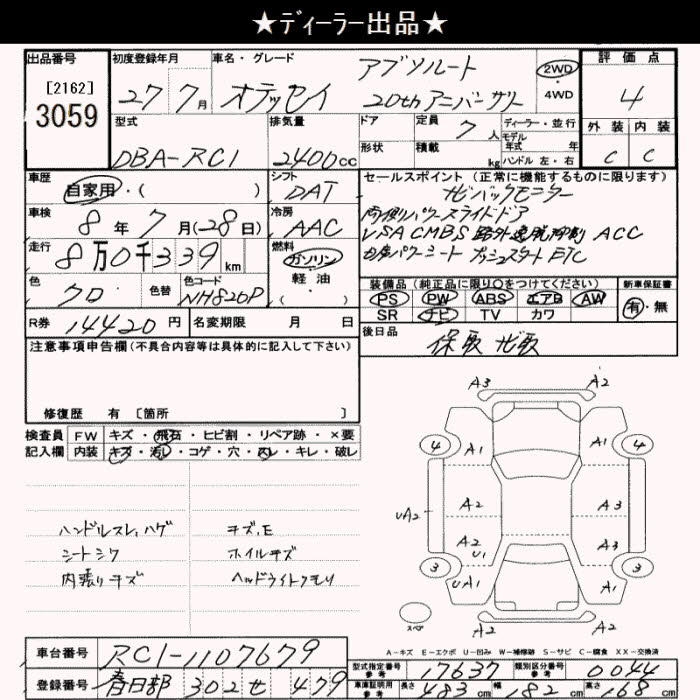 ★ディーラー出品★
出品番号 初度登録年月 車名・グレード 評価点
[2162] 27年7月 オデッセイ アブソルート 2WD
3059 20thアニバーサリー 4WD 4
型式 排気量 ドア 定員 7人 ディーラー・並行 外装 内装
DBA-RC1 2400cc 形状 積載 kg モデル年式 年 C C
ハンドル左・右
車歴 自家用・( ) シフト DAT セールスポイント(正常に機能するものに限ります)
ナビバックモニター
車検 8年7月(28日) 冷房 AAC 両側パワースライドドア
VSA CMBS 路外逸脱抑制 ACC
走行 8万0千339km 燃料 ガソリン パワーシート プッシュスタート ETC
軽油
( )
色 クロ 色替 色コード NH820P 装備品(純正品に限り○をつけてください) 新車保証書
PS PW ABS エアB AW 有・無
SR ナビ TV カワ
R券 14420円 名変期限 月 日 後日品 保取 ナビ取
注意事項申告欄(不具合内容等は具体的に記入して下さい)
修復歴 有 [箇所 ]
検査員 FW キズ・飛石・ヒビ割・リペア跡・×要
記入欄 内装 キズ・汚れ・コゲ・穴・スレ・キレ・破レ
ハンドルスレ,ハゲ キズ,E
シートシワ ホイルキズ
内張りキズ ヘッドライトクモリ
A3 A2
4 A1 A1 4
UA2 A2 A3
A2 U1 A3
3 UA1 A1 3
スペア A2 A2
A-キズ E-エクボ U-凹み W-補修跡 S-サビ C-腐食 XX-交換済
車台番号 RC1-1107679 型式指定番号 参考 17637 類別区分番号 参考 0044
登録番号 春日部 302 せ 479 車庫証明用 参考 長さ 483cm 幅 182cm 高さ 168cm